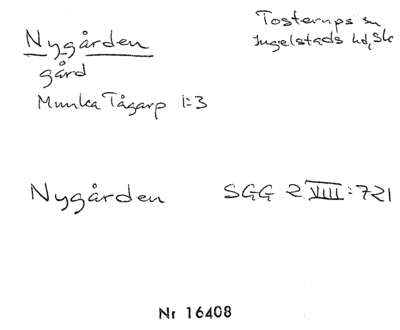 Nygården
Tosterups sn
Ingelstads hd, Sk
gård
Munka Tågarp 1:3
Nygården
SGG 2 VIII:721
Nr 16408